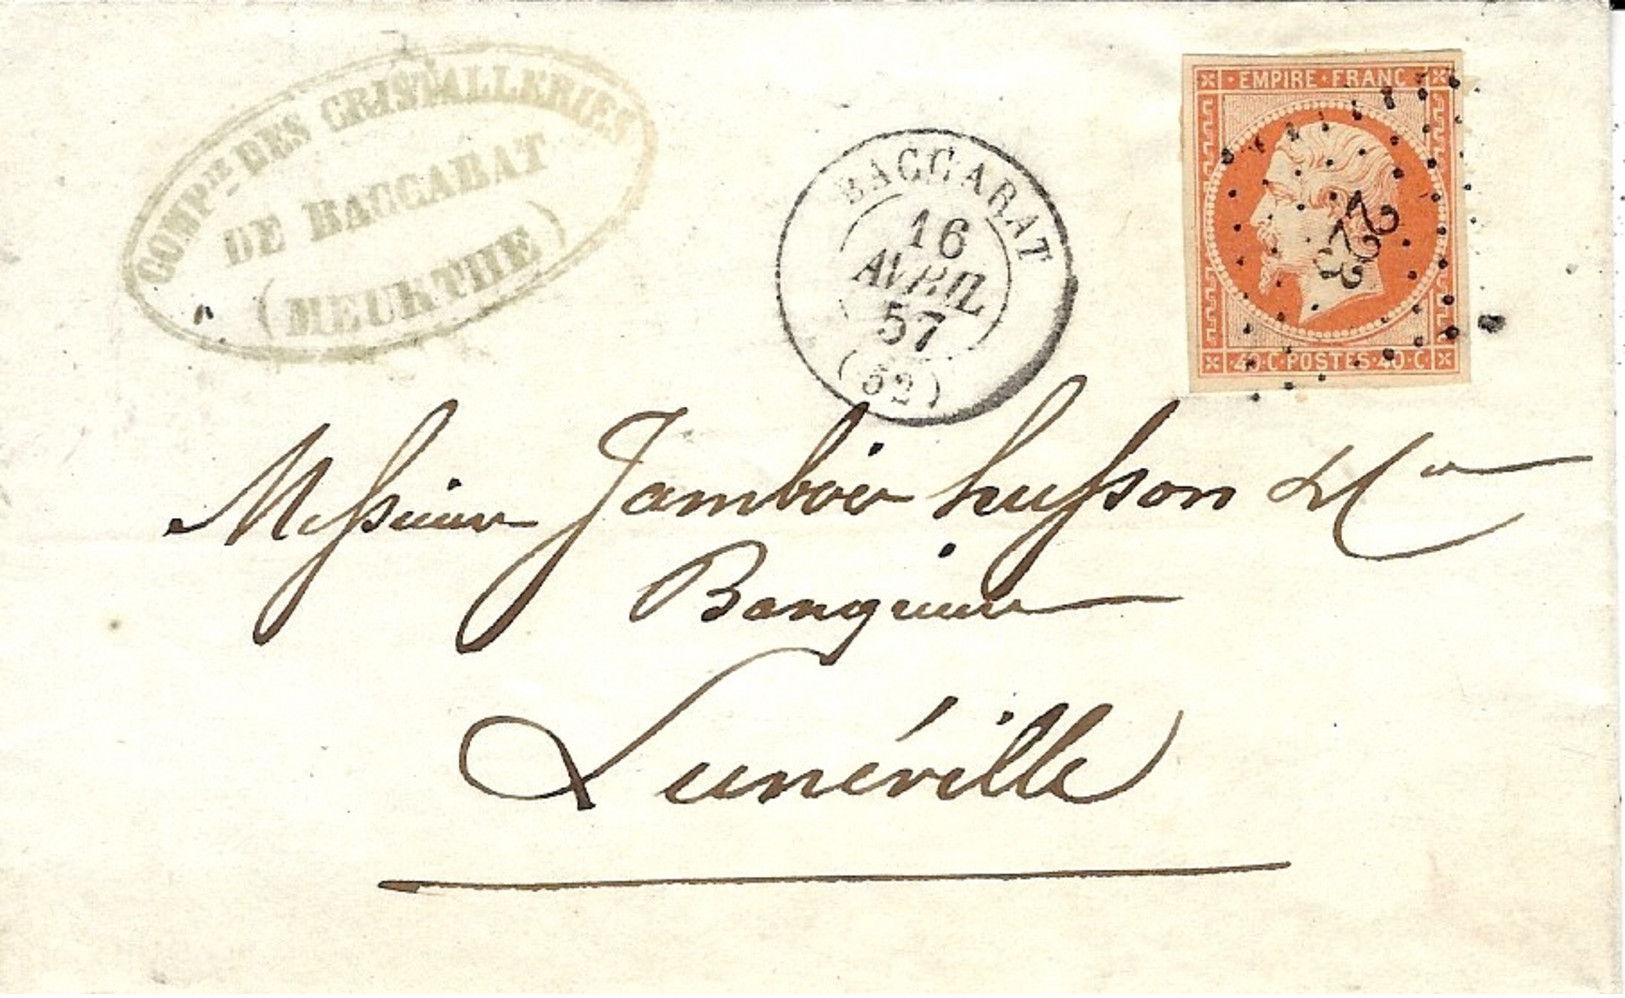 COMP.IE DES CRISTALLERIES
DE BACCARAT
(MEURTHE)
BACCARAT
16
AVRIL
57
(52)
EMPIRE FRANC
223
40 C POSTES 40 C
Messieurs Jambois husson & Cie
Banquiers
Lunéville